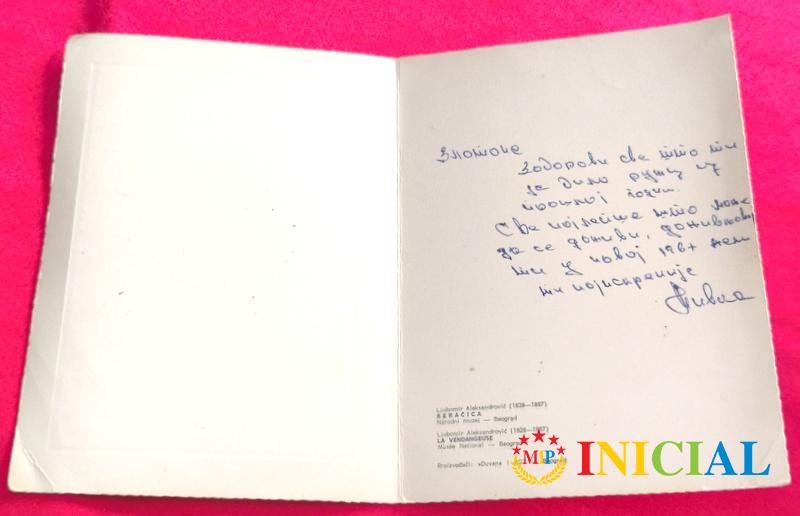 Злотоне
Заборови све што ти
је било ружн у
прошлој годин.
Све најлепше што може
да се доживи, доживљ
ти у новој 196+ жели
ти најискреније
Ljubomir Aleksandrović (1828—1887)
BERAČICA
Narodni muzej — Beograd
Ljubomir Aleksandrović (1828—1887)
LA VENDANGEUSE
Musée National — Beograd
Proizvođač: »Duvan
MIP
INICIAL